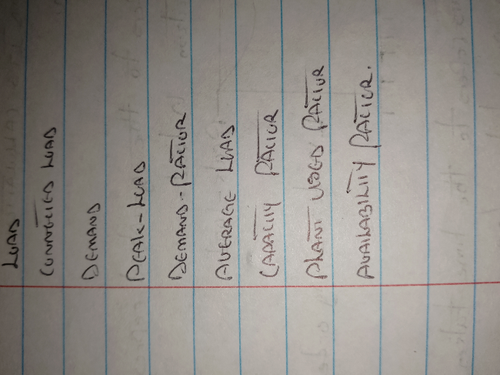 LOAD
CONNECTED LOAD
DEMAND
PEAK-LOAD
DEMAND-FACTOR
AVERAGE LOAD
CAPACITY FACTOR
PLANT USED FACTOR
AVAILABILITY FACTOR.